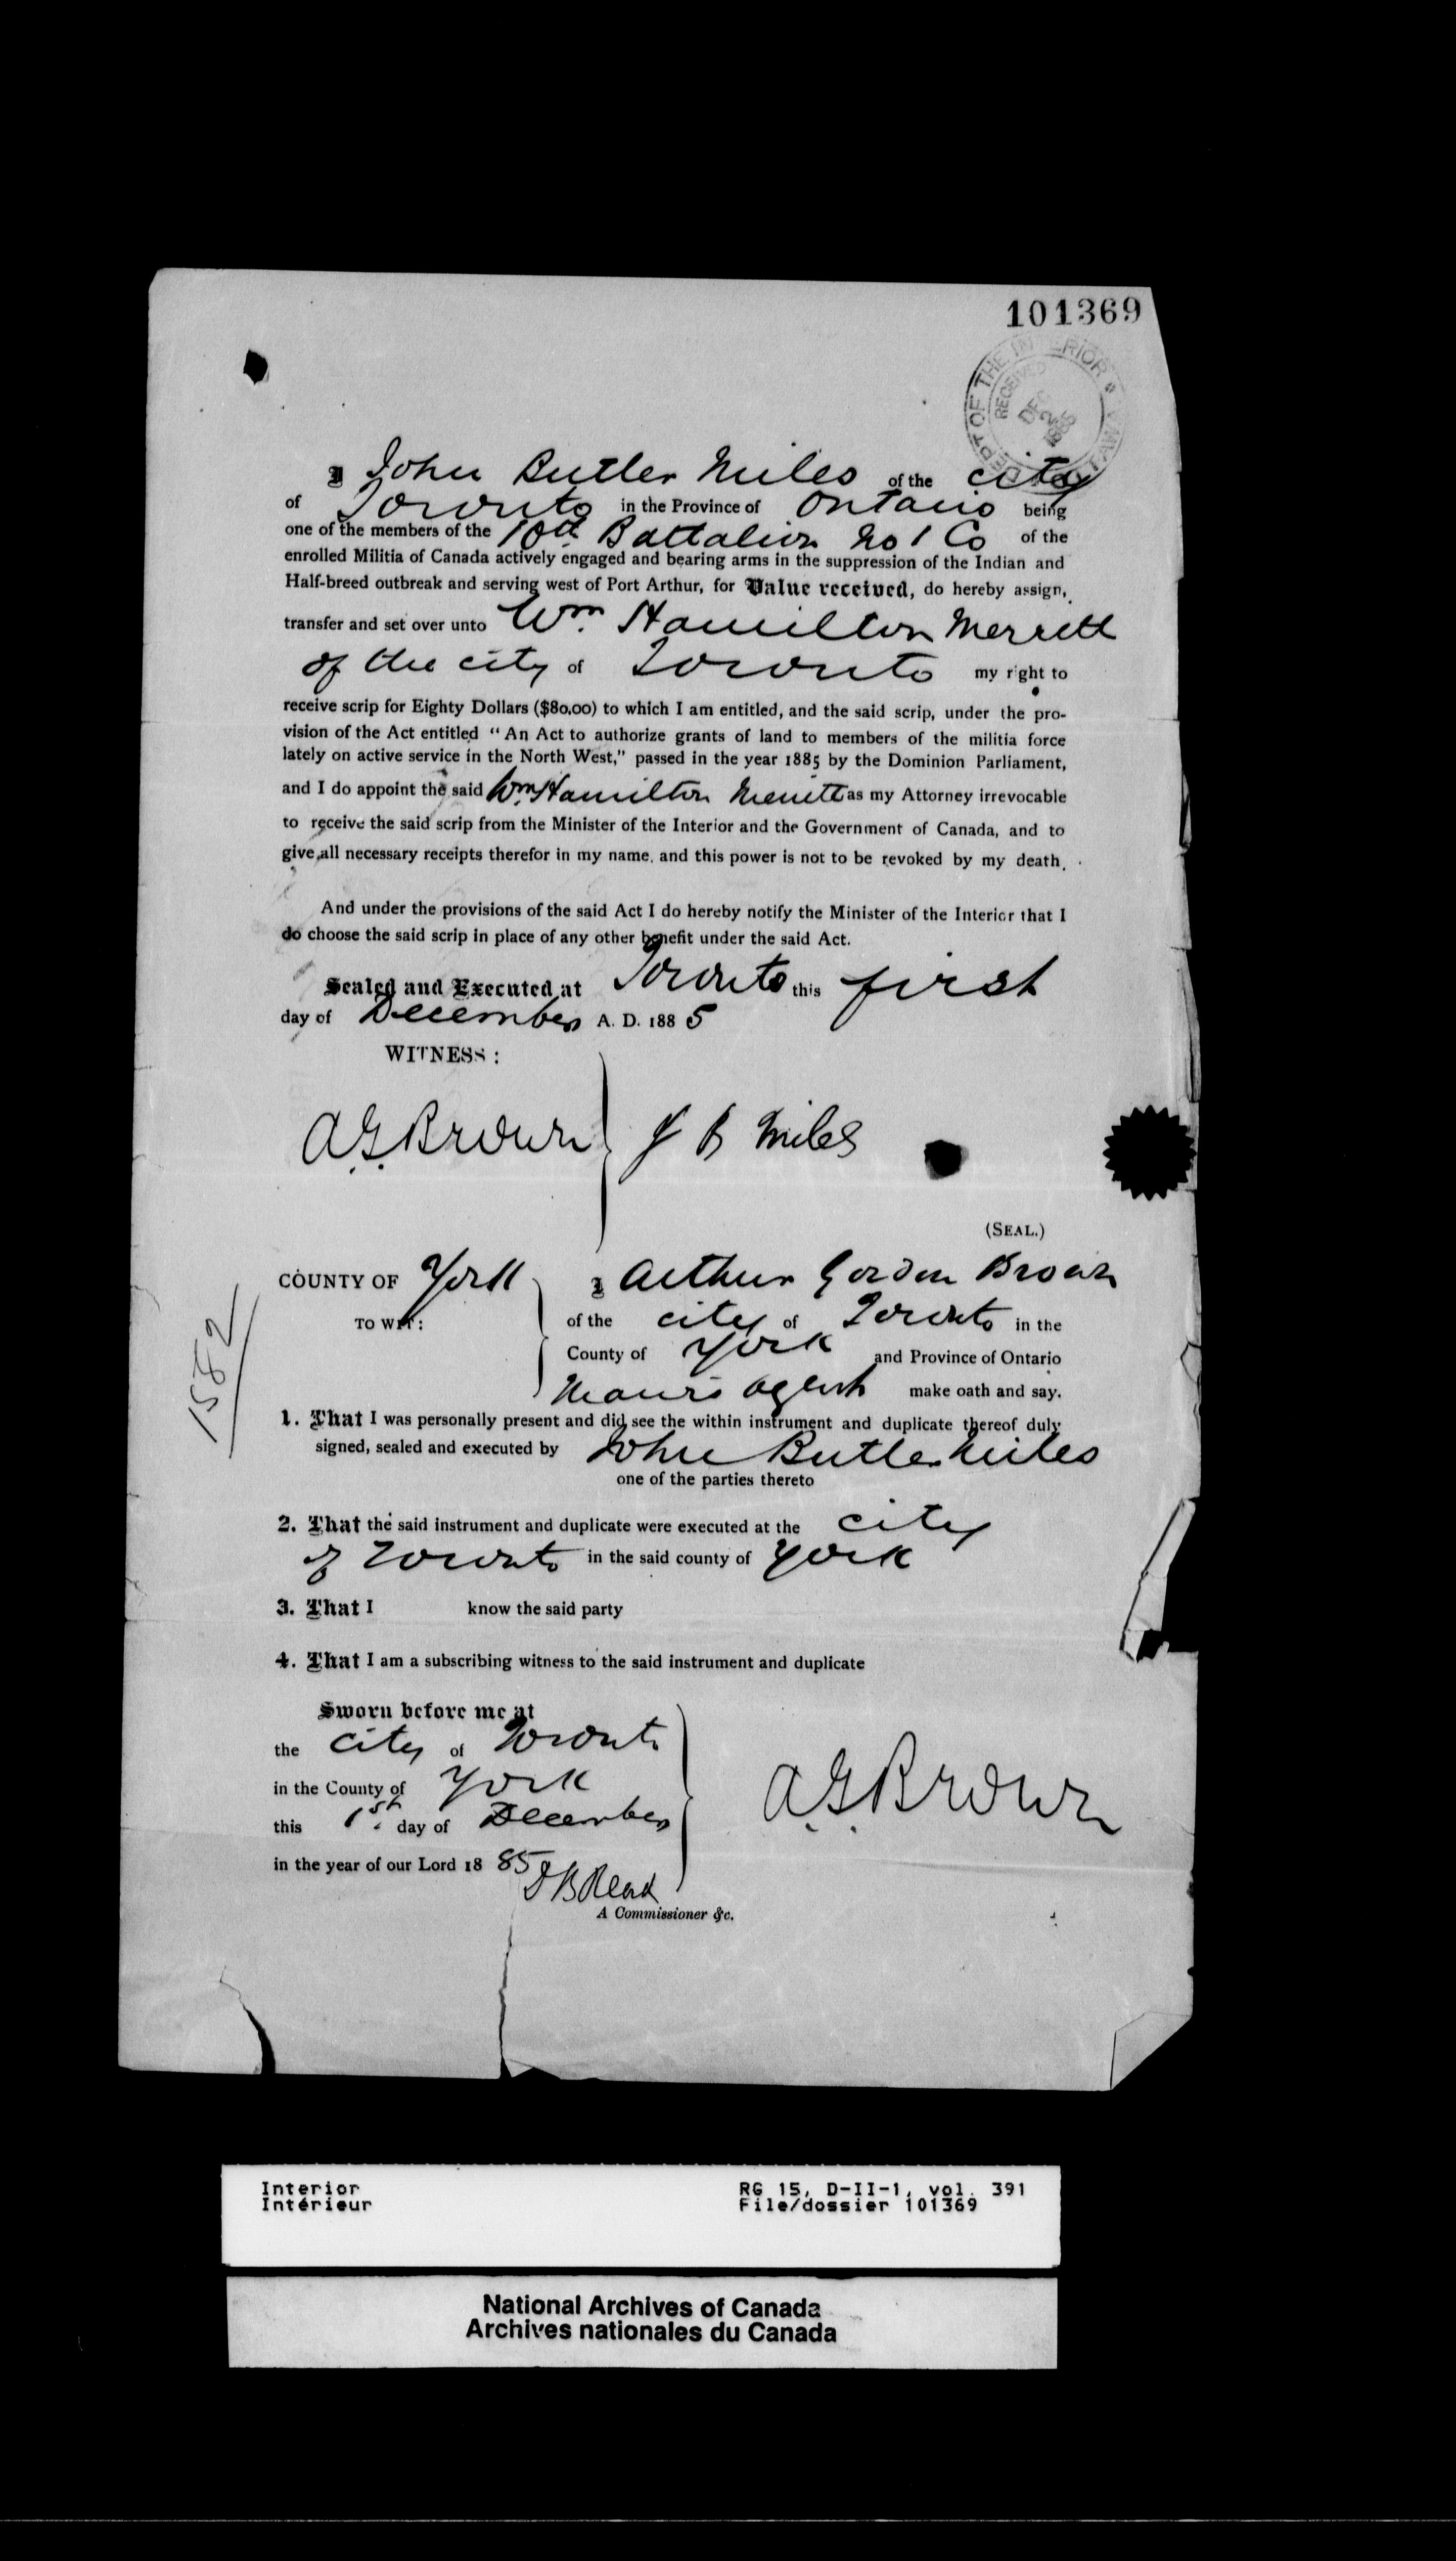 101369
DEPT OF THE INTERIOR * OTTAWA
RECEIVED
DEC 2 1885
I John Butler Miles of the city
of Toronto in the Province of Ontario being
one of the members of the 10th Battalion No 1 Co of the
enrolled Militia of Canada actively engaged and bearing arms in the suppression of the Indian and
Half-breed outbreak and serving west of Port Arthur, for Value received, do hereby assign,
transfer and set over unto Wm. Hamilton Merritt
of the city of Toronto my right to
receive scrip for Eighty Dollars ($80.00) to which I am entitled, and the said scrip, under the pro-
vision of the Act entitled "An Act to authorize grants of land to members of the militia force
lately on active service in the North West," passed in the year 1885 by the Dominion Parliament,
and I do appoint the said Wm. Hamilton Merritt as my Attorney irrevocable
to receive the said scrip from the Minister of the Interior and the Government of Canada, and to
give all necessary receipts therefor in my name, and this power is not to be revoked by my death.
And under the provisions of the said Act I do hereby notify the Minister of the Interior that I
do choose the said scrip in place of any other benefit under the said Act.
Sealed and Executed at Toronto this first
day of December A. D. 1885
WITNESS:
A.G. Brown J B Miles
(SEAL.)
COUNTY OF York I Arthur Gordon Brown
TO WIT: of the city of Toronto in the
County of York and Province of Ontario
agent make oath and say.
1582
1. That I was personally present and did see the within instrument and duplicate thereof duly
signed, sealed and executed by John Butler Miles
one of the parties thereto
2. That the said instrument and duplicate were executed at the city
of Toronto in the said county of York
3. That I know the said party
4. That I am a subscribing witness to the said instrument and duplicate
Sworn before me at
the city of Toronto
in the County of York
this 1st. day of December
A.G. Brown
in the year of our Lord 1885
D B Read
A Commissioner &c.
Interior RG 15, D-II-1, vol. 391
Intérieur File/dossier 101369
National Archives of Canada
Archives nationales du Canada